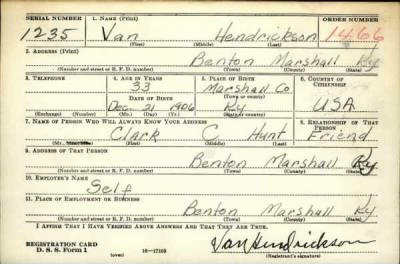 SERIAL NUMBER 1. NAME (Print) ORDER NUMBER
1235 Van Hendrickson 1466
(First) (Middle) (Last)
2. ADDRESS (Print)
Benton Marshall Ky
(Number and street or R. F. D. number) (Town) (County) (State)
3. TELEPHONE 4. AGE IN YEARS 5. PLACE OF BIRTH 6. COUNTRY OF CITIZENSHIP
33 Marshall Co. USA
DATE OF BIRTH (Town or county)
Dec. 21 1906 Ky
(Exchange) (Number) (Mo.) (Day) (Yr.) (State or country)
7. NAME OF PERSON WHO WILL ALWAYS KNOW YOUR ADDRESS 8. RELATIONSHIP OF THAT PERSON
Clark C Hunt Friend
(First) (Middle) (Last)
9. ADDRESS OF THAT PERSON
Benton Marshall Ky
(Number and street or R. F. D. number) (Town) (County) (State)
10. EMPLOYER'S NAME
Self
11. PLACE OF EMPLOYMENT OR BUSINESS
Benton Marshall Ky
(Number and street or R. F. D. number) (Town) (County) (State)
I AFFIRM THAT I HAVE VERIFIED ABOVE ANSWERS AND THAT THEY ARE TRUE.
REGISTRATION CARD
D. S. S. Form 1 (over) 16—17105 Van Hendrickson
(Registrant's signature)